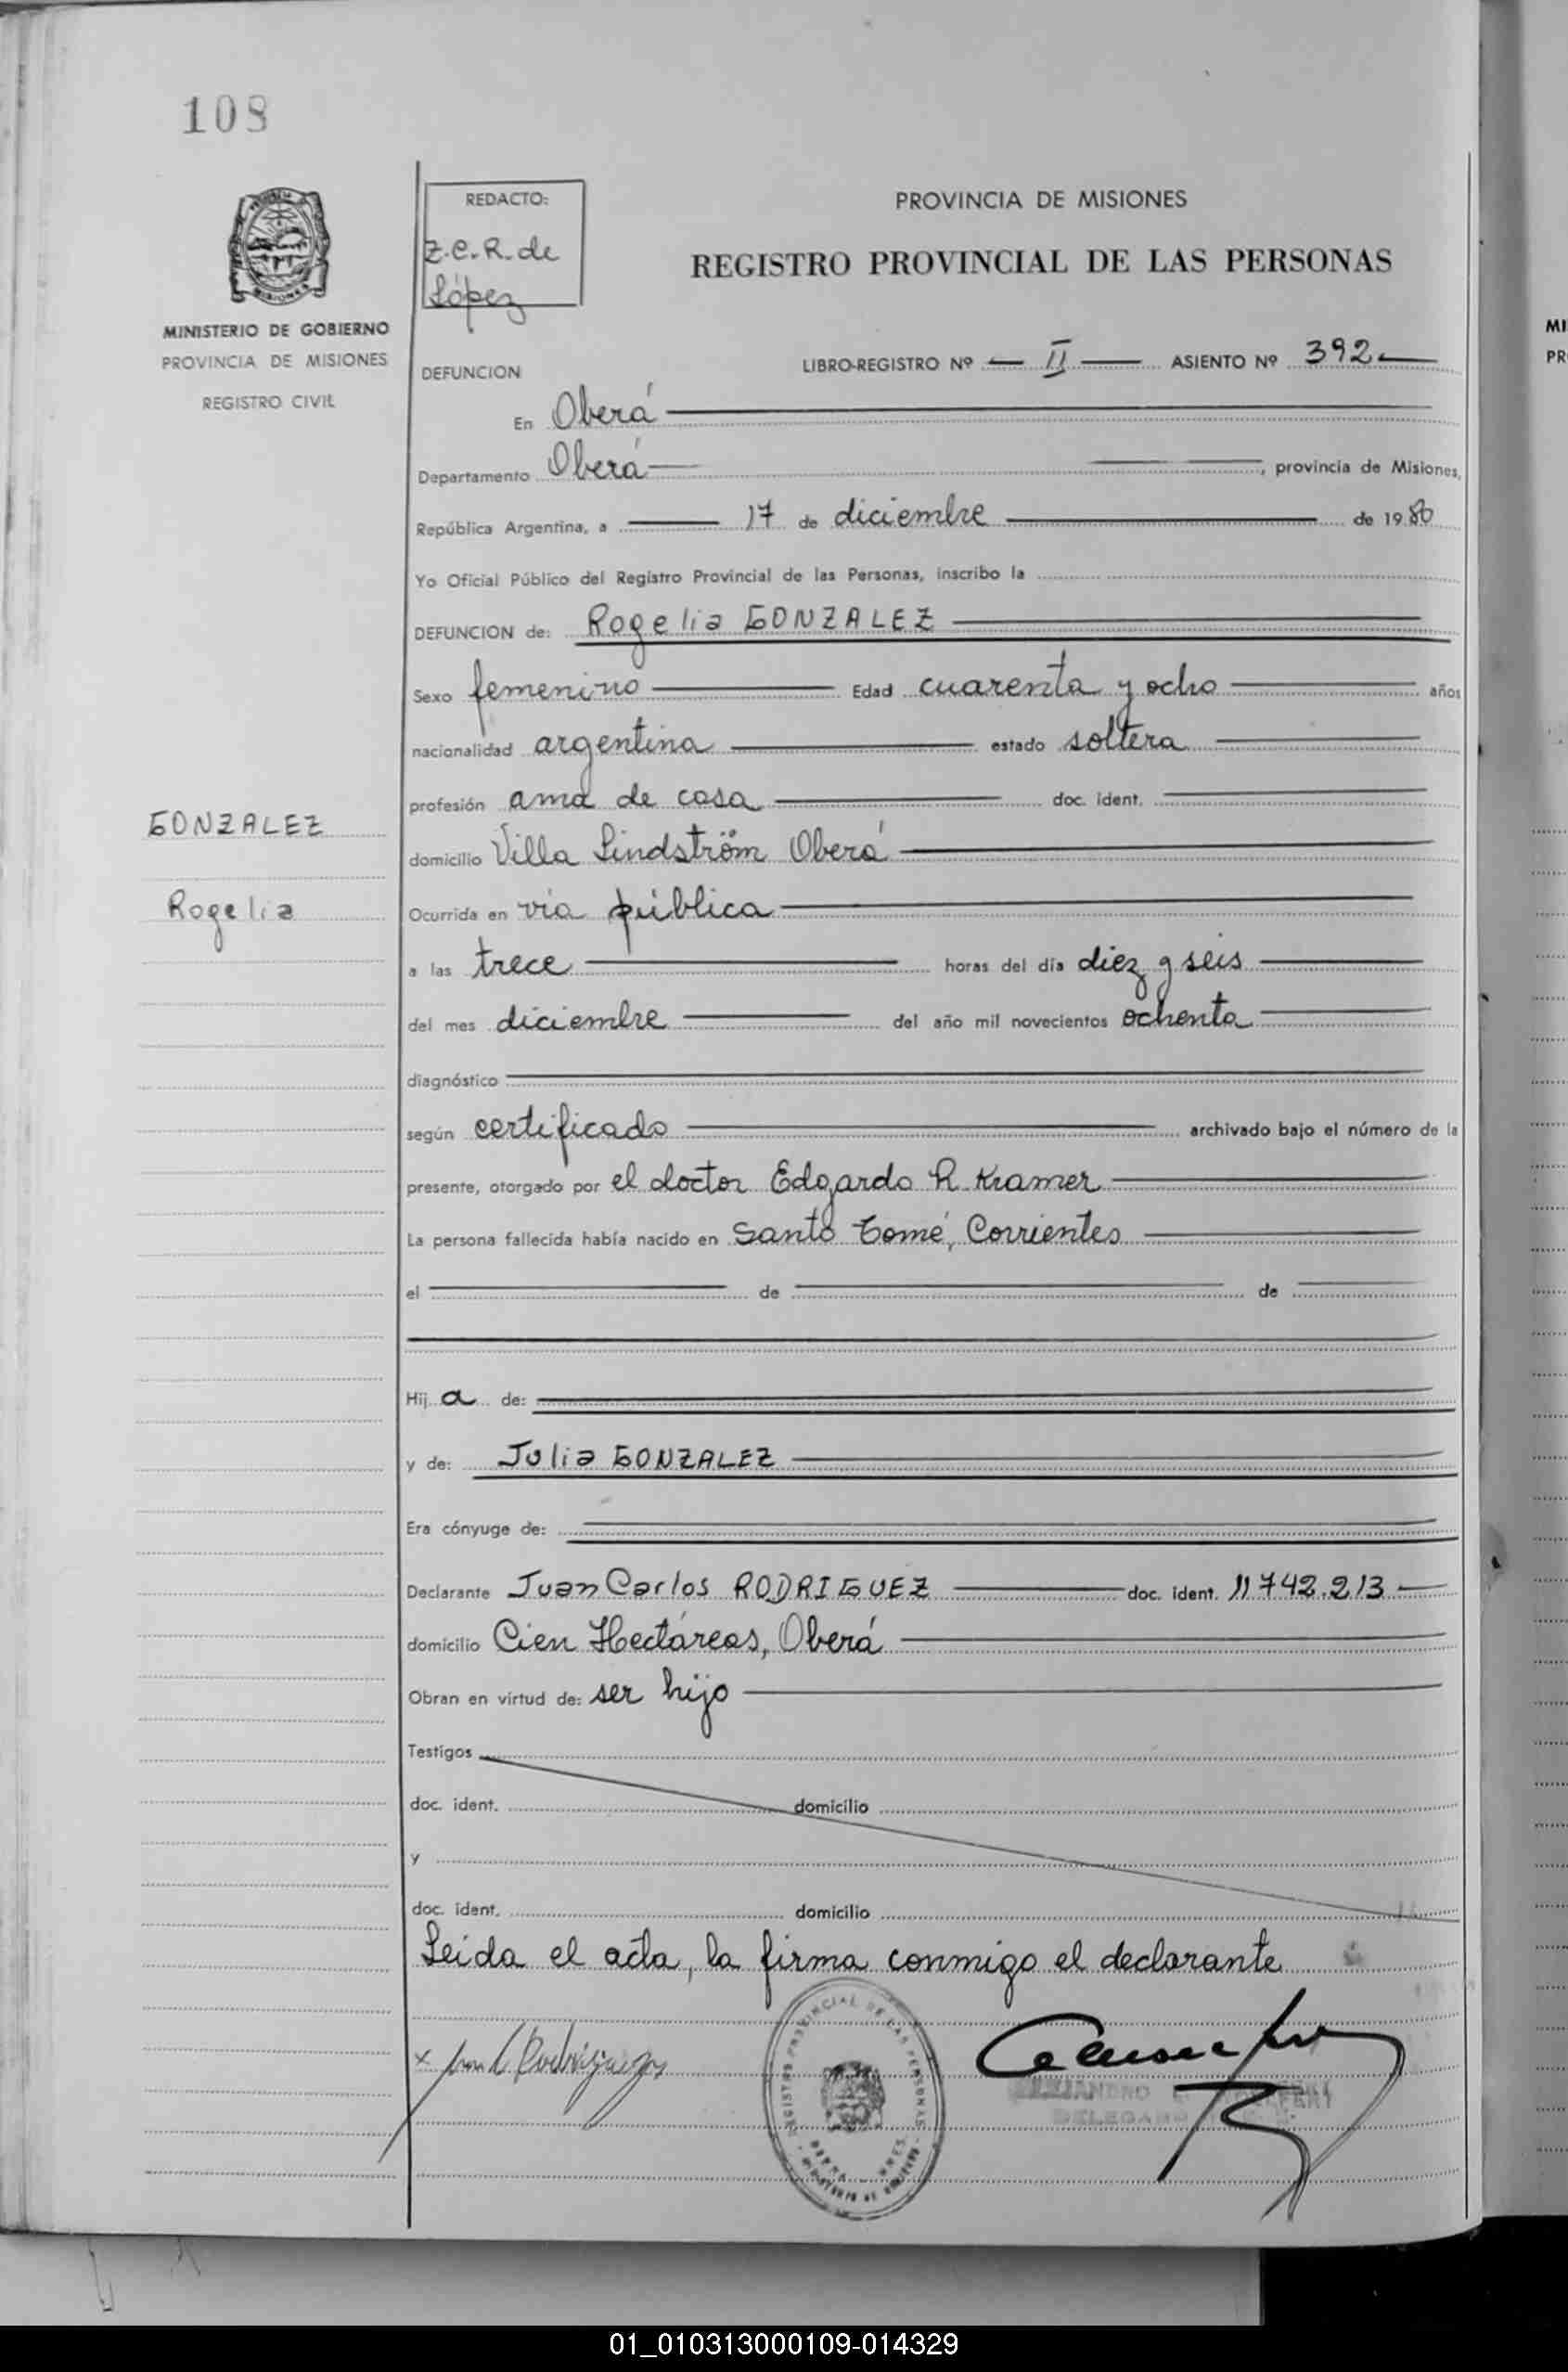 108
REDACTO:
Z.C.R. de
López
PROVINCIA DE MISIONES
REGISTRO PROVINCIAL DE LAS PERSONAS
MINISTERIO DE GOBIERNO
PROVINCIA DE MISIONES
REGISTRO CIVIL
DEFUNCION
LIBRO-REGISTRO Nº II ASIENTO Nº 392
En Oberá
Departamento Oberá, provincia de Misiones,
República Argentina, a 17 de diciembre de 1980
Yo Oficial Público del Registro Provincial de las Personas, inscribo la
DEFUNCION de: Rogelia GONZALEZ
Sexo femenino Edad cuarenta y ocho años
nacionalidad argentina estado soltera
profesión ama de casa doc. ident.
GONZALEZ
Rogelia
domicilio Villa Lindström Oberá
Ocurrida en vía pública
a las trece horas del día diez y seis
del mes diciembre del año mil novecientos ochenta
diagnóstico
según certificado archivado bajo el número de la
presente, otorgado por el doctor Edgardo R. Kramer
La persona fallecida había nacido en Santo Tomé, Corrientes
el de de
Hij a de:
y de: Julia GONZALEZ
Era cónyuge de:
Declarante Juan Carlos RODRIGUEZ doc. ident. 11742.213
domicilio Cien Hectáreas, Oberá
Obran en virtud de: ser hijo
Testigos
doc. ident. domicilio
y
doc. ident. domicilio
Leida el acta, la firma conmigo el declarante
x Juan C Rodriguez
REGISTRO PROVINCIAL DE LAS PERSONAS
01_010313000109-014329